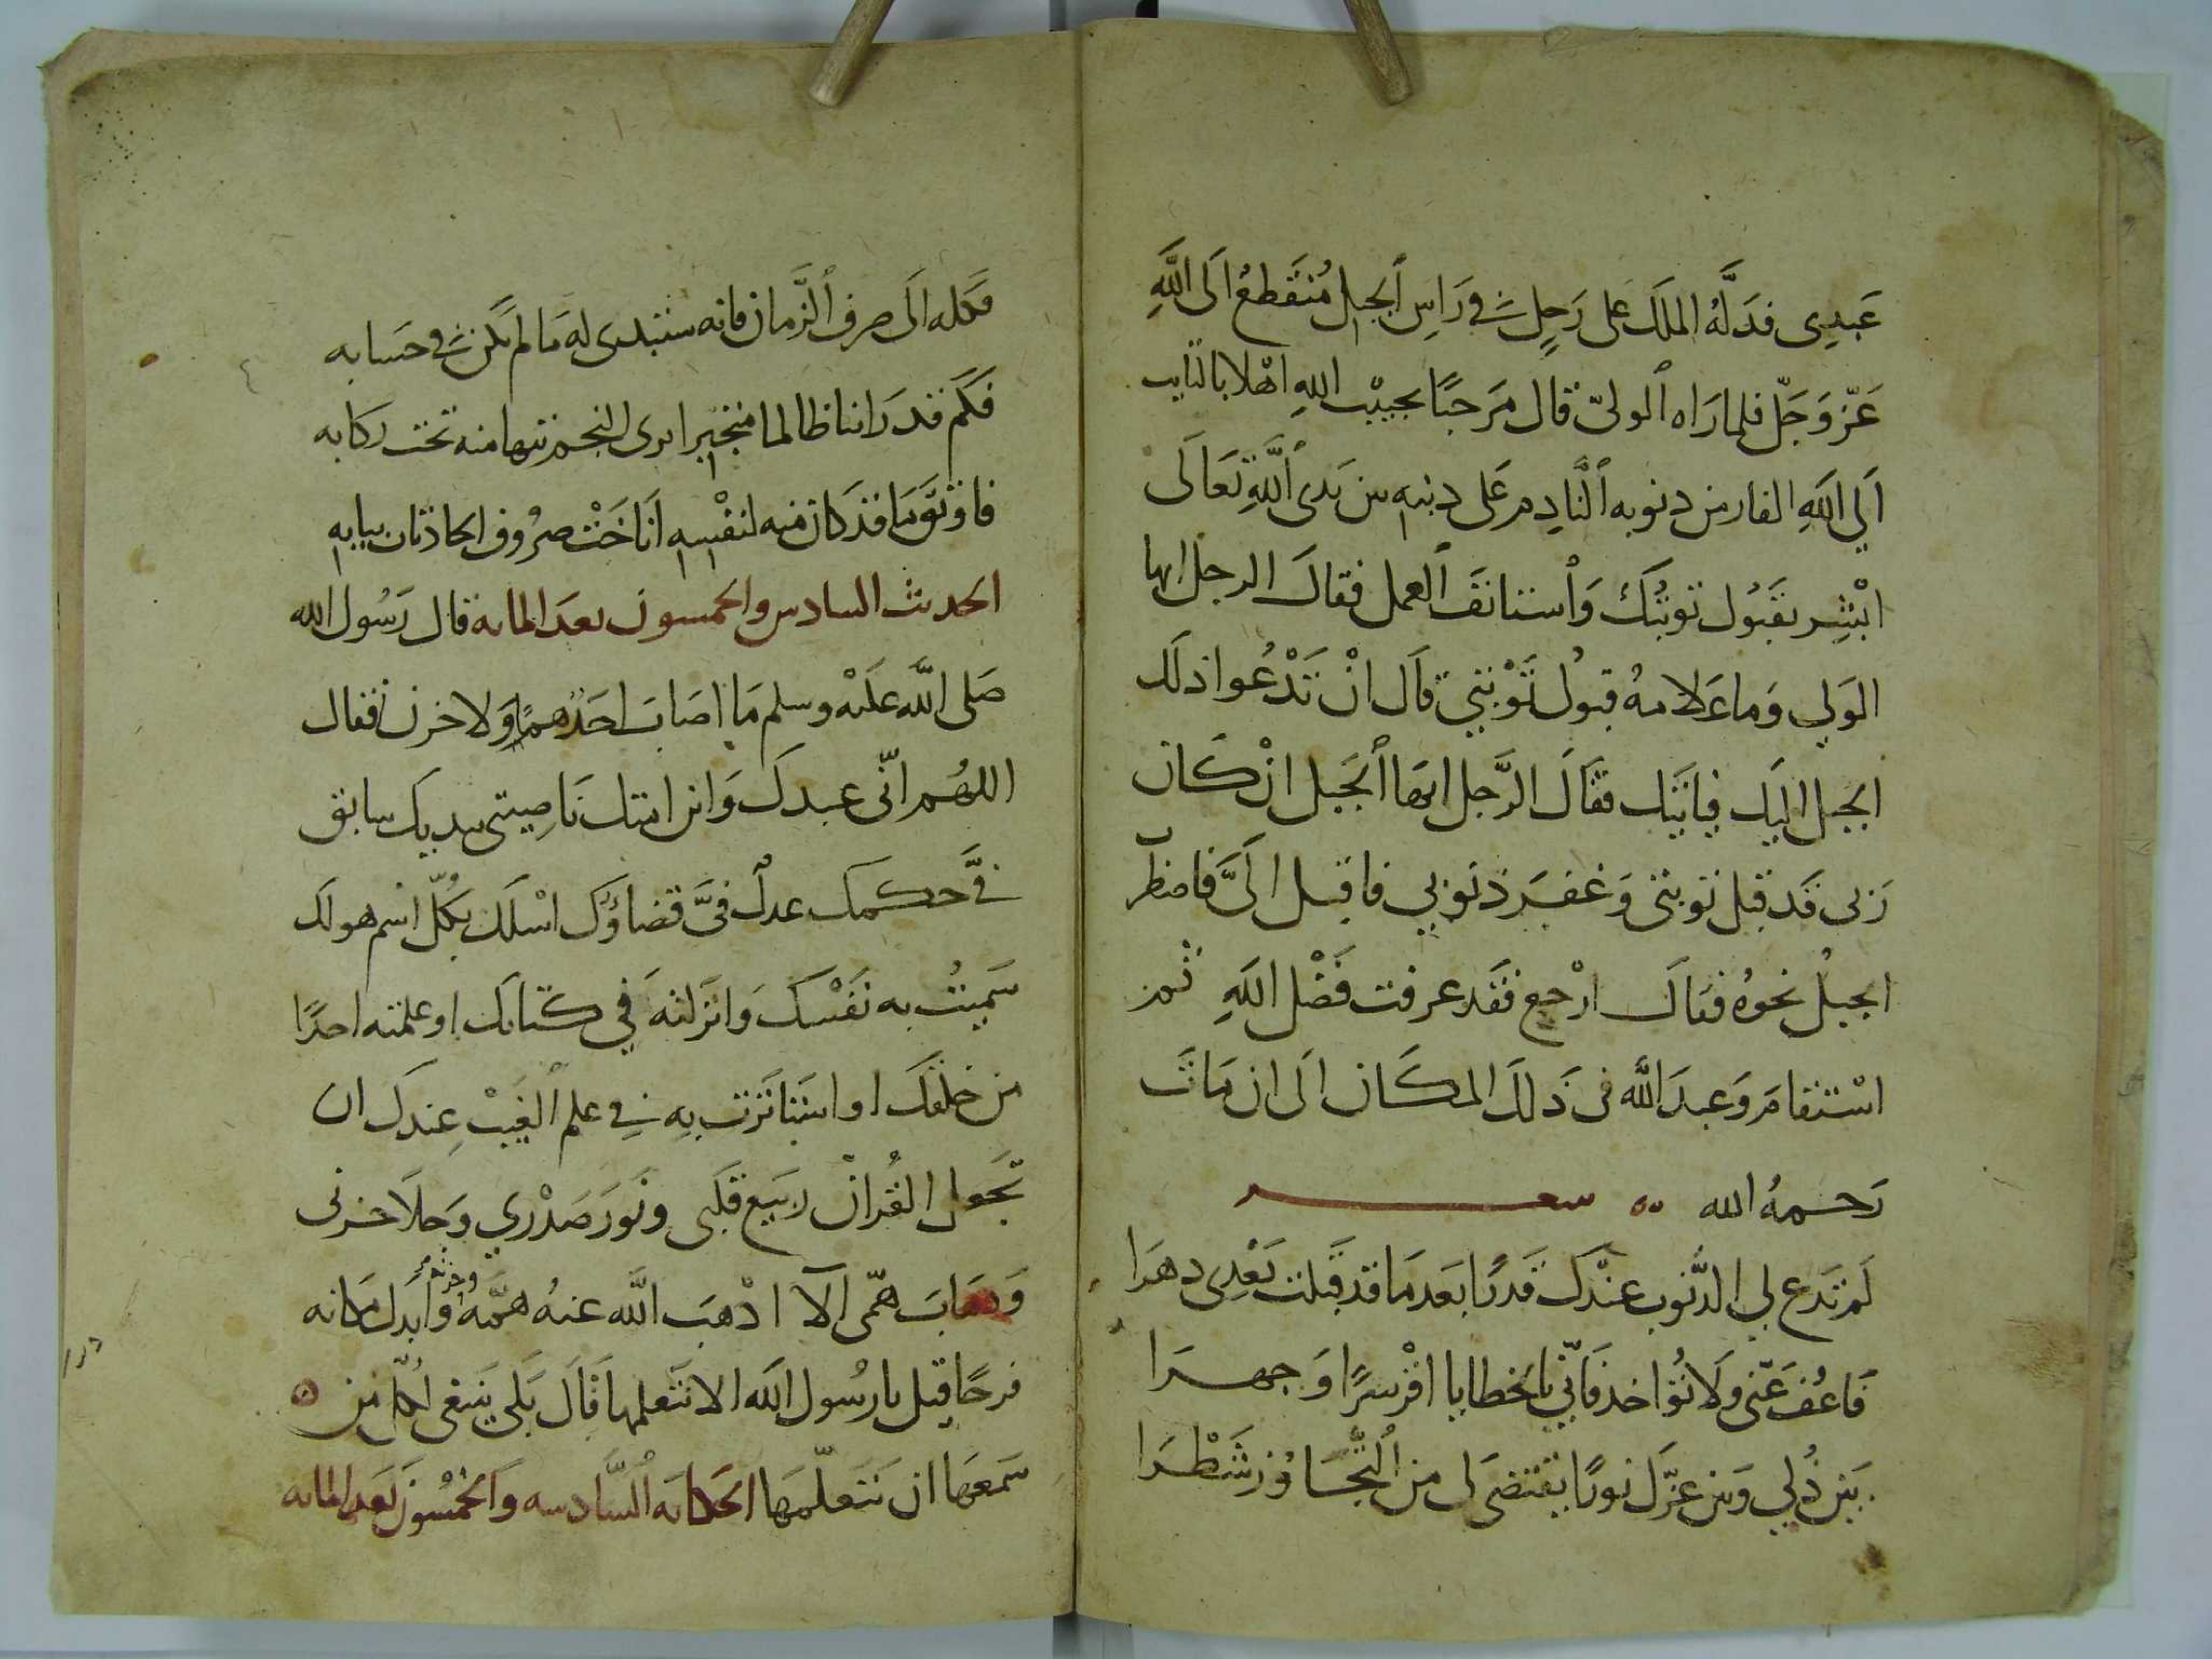 عَبدِى فدَلَّهُ الملَك عَلى رَجلٍ فى رَاسِ الجبل مُنقَطعُ الَى اللَّهِ
عَزّ وَجَلّ فلما رَاه الولىّ قال مَرحبًا بحبيْب اللهِ اهْلا بالتايب
اَلي اللَهِ الفار من دنوبه النَادِم عَلى دنبهِ بين يَدى اللَّهِ تعَالَى
ابْشِر بقَبُول توبتُك وَاستانفَ العمل فقالَ الرجل ايها
الوَلي وَما عَلامهُ قبولُ تَوْبتي قالَ انْ تَدْعُوا ذلَك
الجبل اليَك فياتيَك فقَالَ الرَّجل ايهَا الجَبل انْ كَان
رَبى قَد قبل توبتى وَغفرَ ذنوبي فاقبل الَىَّ فامنطر
الجبلُ نحوُه فقالَ ارْجع فقَد عرفت فضْل اللَهِ ثم
اسْتقامَ وَعبدَ اللَّه فى ذَلكَ المكَان الَى ان مَاتَ
رَحمهُ الله ٥٥ شعر
لَم تَدع لي الذُّنوب عنْدكَ قَدرًا بَعد مَا قد قَبلت بَعْدِى دهرَا
فَاعُف عَنّى وَلا تُؤاخد فَانّى بالخطايا اقرّ سرًا وَجهرَا
بَين ذُلي وَبين عزّك نورًا يقتضىَ لى من التَّجَاوُز شَطْرَا
فكله الَى صرف الزَّمان فانه ستبدى له مَا لم يَكن فى حَسابه
فَكَم قد رَاينا ظالما متجبرا يرى النجم تيها منه تحت ركَابه
فاوتوّمَا قد كان منه لنفْسهِ اَناخَتْ صرُوف الحاذثان ببابهِ
الحديث السادس والخمسون بعدَ المايه قال رَسُول الله
صَلى اللَّه عَليْه وسلم مَا اصَابَ احَدٌ همٌ وَلا حزن فقال
اللهُم انّى عبدكَ وَابن امتك نَاصِيتى بيديك سابق
فيَّ حكمك عدلٌ فىَّ قضاؤك اسْلك بكلّ اسم هو لَك
سَميتُ به نفْسكَ وَانزَلتهَ في كتابَك او علمته احدًا
من خلقكَ او استَاثَرت بِه فى علم الغَيبْ عِندكَ ان
تجَعل القُرانْ ربيع قلَبى ونَورَ صَدْري وَجلَا حزنى
وَذهَابَ همّى الآ ادْهبَ اللَّه عنهُ همّهُ وحزنه وَابدل مكانه
فرحًا قيل يا رسُول اللَه الا نتَعلمها قَالَ بَلى ينبغى لكل من
سَمعَها ان يَتعلّمهَا الحكايَه السَّادسه وَالخمْسُون بَعد المايه